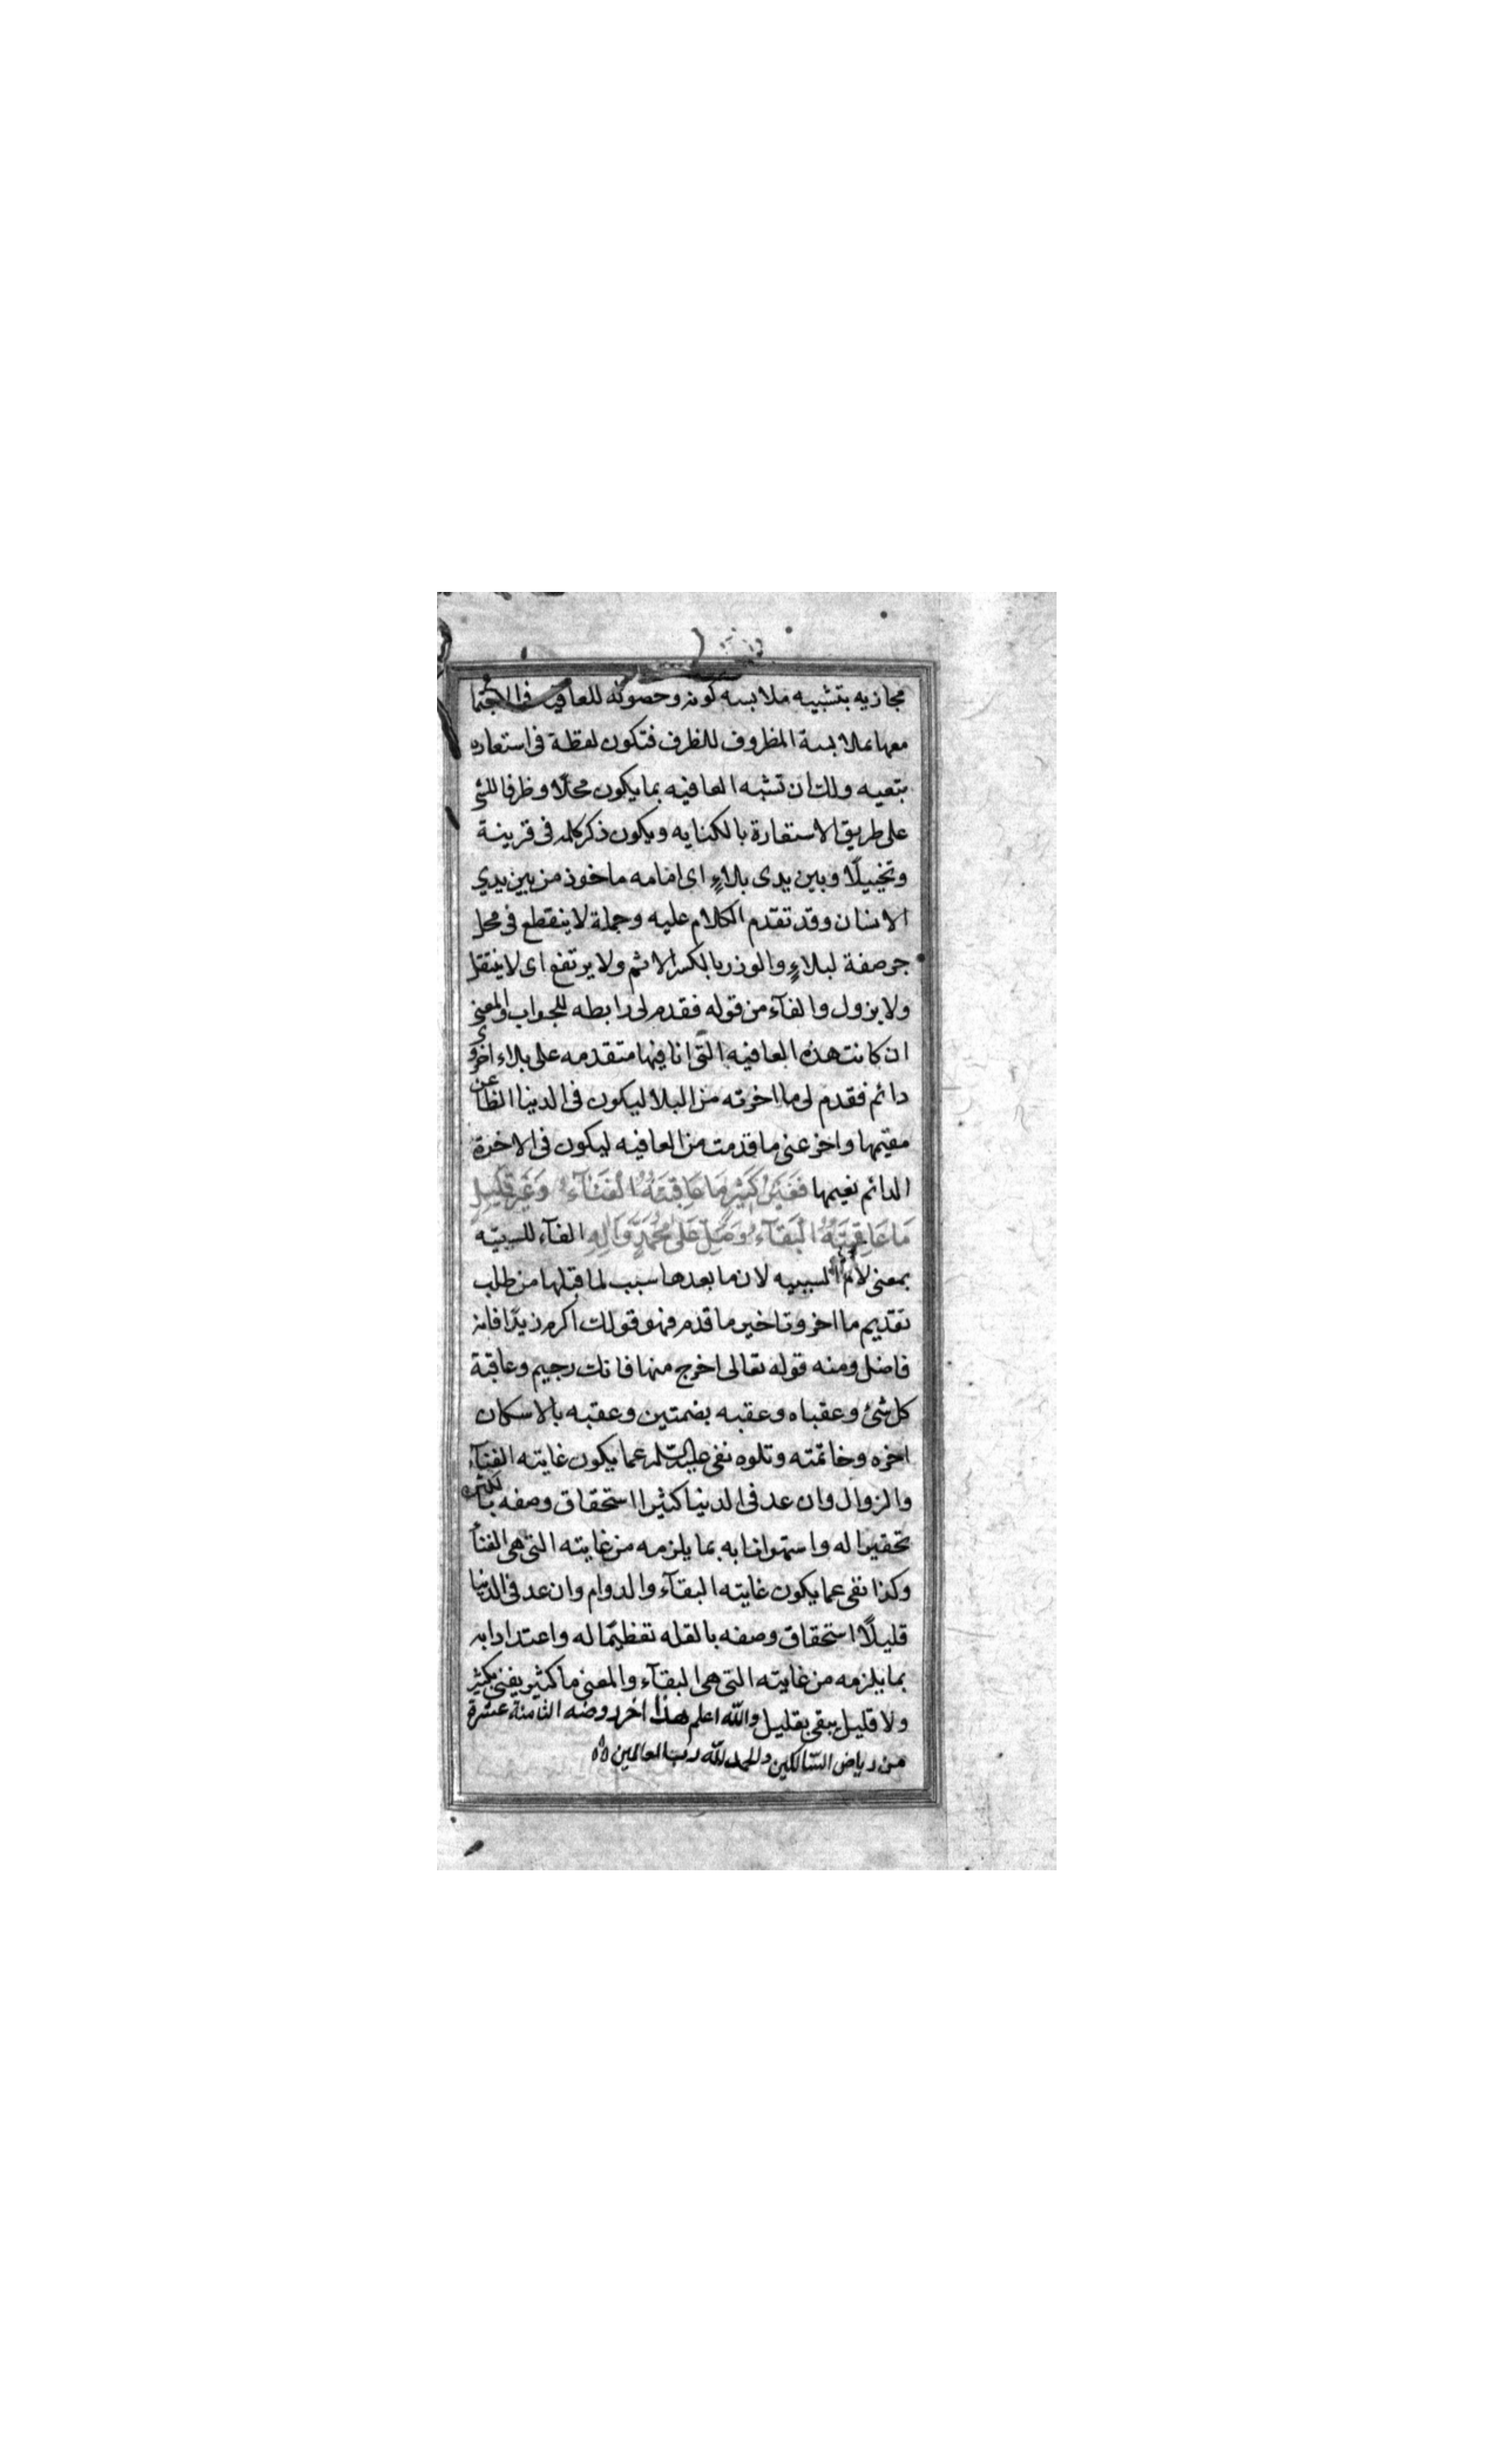 مجازيه بتشبيه ملابسه كونه وحصوله للعافيه فى الاجتما
معها بملابسة المظروف للظرف فتكون لفظة فى استعاره
بتعيه ولك ان تشبه العافيه بما يكون محلًا وظرفا للشئ
على طريق الاستعارة بالكنايه ويكون ذكر كلمه فى قرينة
وتخييلًا وبين يدى بلاءٍ اى امامه ماخوذ من بين يدي
الانسان وقد تقدم الكلام عليه وجملة لا ينقطع فى محل
جر صفة لبلاءٍ والوزر بالكسر الاثم ولا يرتفع اى لا ينتقل
ولا يزول والفآء من قوله فقدم لى رابطه للجواب والمعنى
ان كانت هذه العافيه التى انا فيها متقدمه على بلاء اخروى
دائم فقدم لى ما اخرته من البلا ليكون فى الدينا الظاعن
مقيمها واخر عنى ما قدمت من العافيه ليكون فى الاخرة
الدائم نعيمها فَغَيْرُ كَثِيْرٍ مَا عَاقِبَتُهُ الْفَنَآءُ وَغَيْرُ قَلِيْلٍ
مَا عَاقِبَتُهُ الْبَقَآءُ وَصَلِّ عَلىٰ مُحَمَّدٍ وَآلِهِ الفآء للسببيّه
بمعنى لام السببيه لان ما بعدها سبب لما قبلها من طلب
تقديم ما اخر وتاخير ما قدم فهو قولك اكرم زيدًا فانه
فاضل ومنه قوله تعالى اخرج منها فانك رجيم وعاقبة
كل شئ وعقباه وعقبه بضمتين وعقبه بالاسكان
اخره وخاتمته وتلوه نفى عليه السلم عما يكون غايته الفنآء
والزوال وان عد فى الدينا كثيرا استحقاق وصفه بالكثره
تحقيرا له واستهوانا به بما يلزمه من غايته التى هى الفنآ
وكذا نفى عما يكون غايته البقآء والدوام وان عد فى الدنيا
قليلًا استحقاق وصفه بالقله تعظيمًا له واعتدادا به
بما يلزمه من غايته التى هى البقآء والمعنى ما كثير يفنى بكثير
ولا قليل يبقى بقليل والله اعلم هذا اخر روضه الثامنة عشرة
من رياض السّالكين والحمد لله رب العالمين